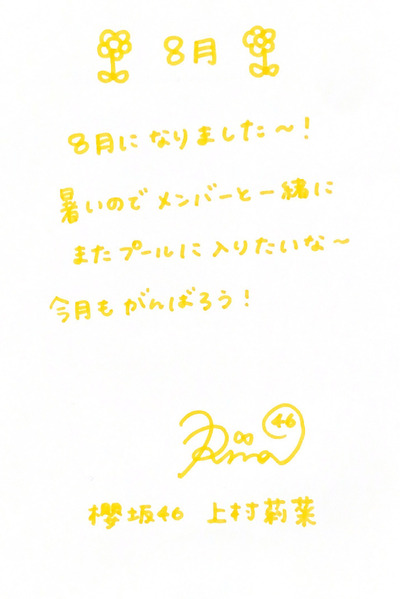 8月
8月になりました〜!
暑いのでメンバーと一緒に
またプールに入りたいな〜
今月もがんばろう!
Rina 46
櫻坂46 上村莉菜